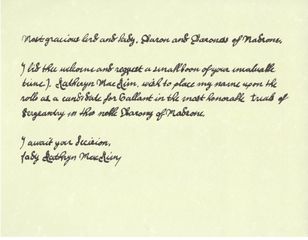 Most gracious lord and lady, Baron and Baroness of Madrone,
I bid the welcome and request a small boon of your invaluable
time. I, Kathryn MacLuin, wish to place my name upon the
rolls as a candidate for Gallant in the most honorable trials of
Sergeantry in this noble Barony of Madrone.
I await your decision,
Lady Kathryn